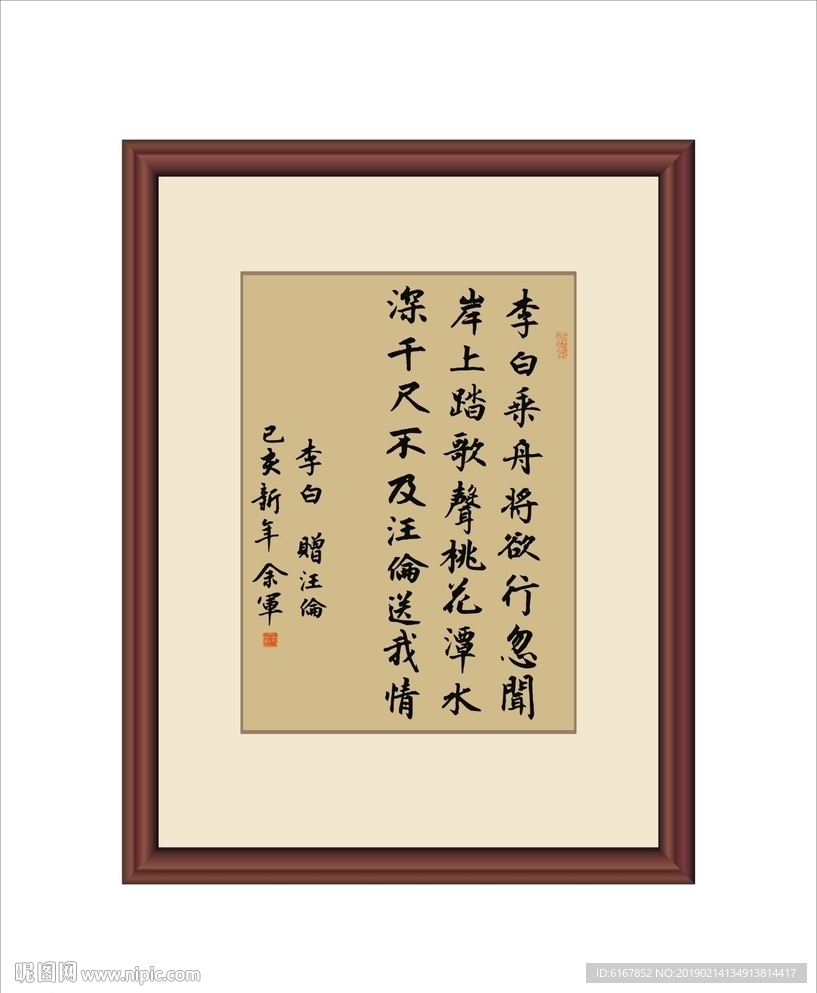 李白乘舟将欲行忽聞
岸上踏歌聲桃花潭水
深千尺不及汪倫送我情
李白 贈汪倫
己亥新年 余軍
昵图网 www.nipic.com
ID:6167852 NO:20190214134913814417